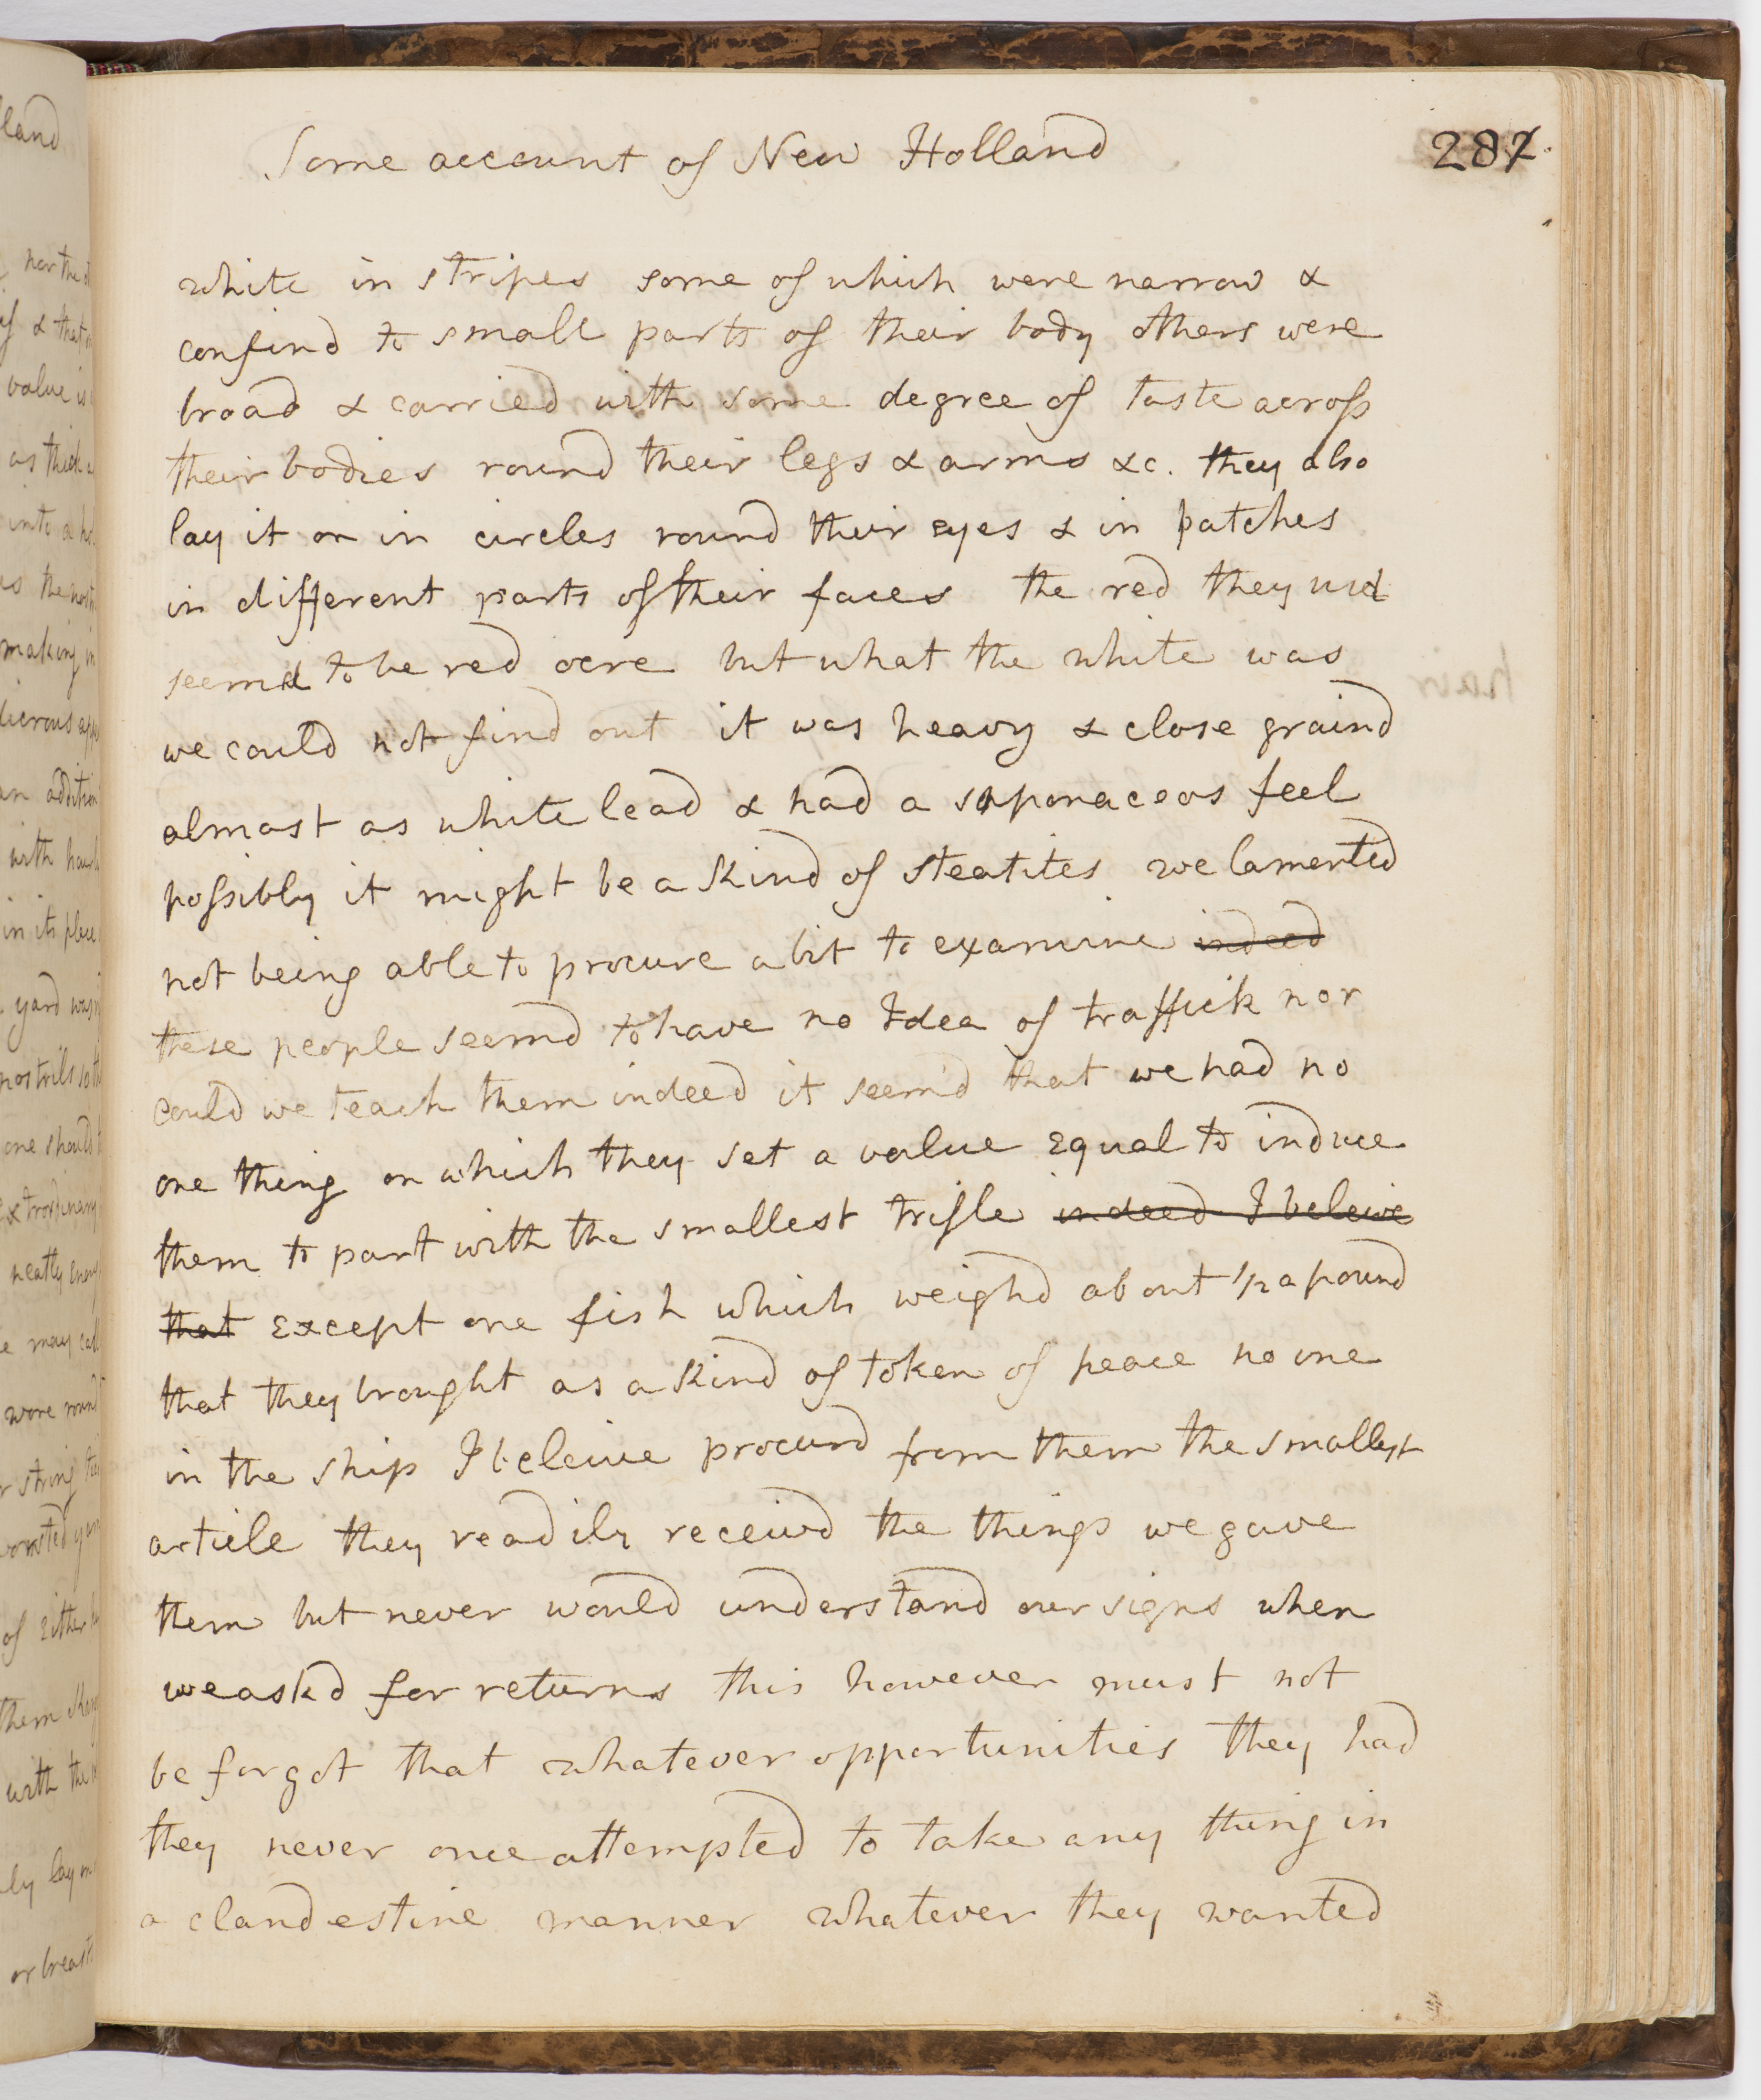 Some account of New Holland
287
white in stripes some of which were narrow &
confind to small parts of their body others were
broad & carried with some degree of taste across
their bodies round their legs & arms &c. they also
lay it on in circles round their eyes & in patches
in different parts of their faces the red they usd
seemd to be red ocre but what the white was
we could not find out it was heavy & close graind
almost as white lead & had a saponaceos feel
possibly it might be a Kind of steatites we lamented
not being able to procure a bit to examine indeed
these people seemd to have no Idea of traffick nor
could we teach them indeed it seem'd that we had no
one thing on which they set a value Equal to induce
them to part with the smallest trifle indeed I beleive
that Except one fish which weighd about 1/2 a pound
that they brought as a Kind of token of peace no one
in the ship I beleive procurd from them the smallest
article they readily receivd the things we gave
them but never would understand our signs when
we askd for returns this however must not
be forgot that whatever opportunities they had
they never once attempted to take any thing in
a clandestine manner whatever they wanted